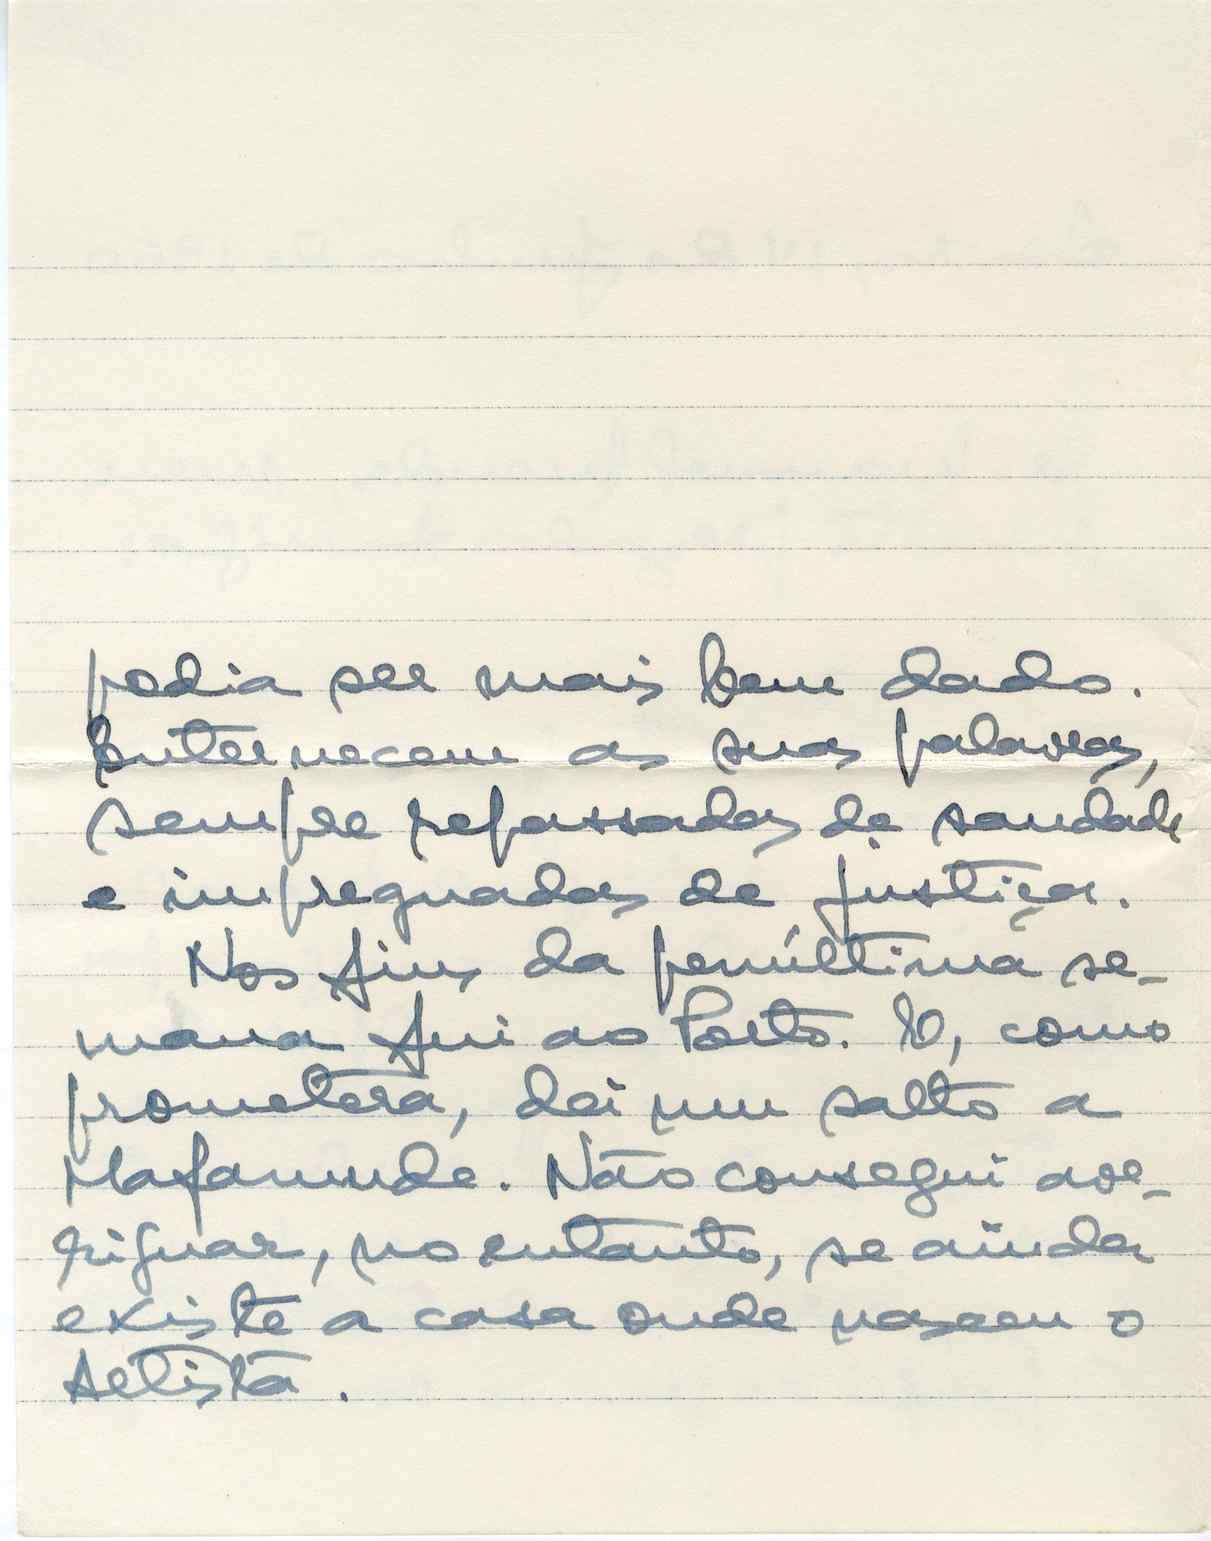 podia ser mais bem dado.
Enternecem as suas palavras,
sempre repassadas de saudade
e impregnadas de justiça.
Nos fins da penúltima se-
mana fui ao Porto. E, como
prometera, dei um salto a
Mafamude. Não consegui ave-
riguar, no entanto, se ainda
existe a casa onde nasceu o
artista.